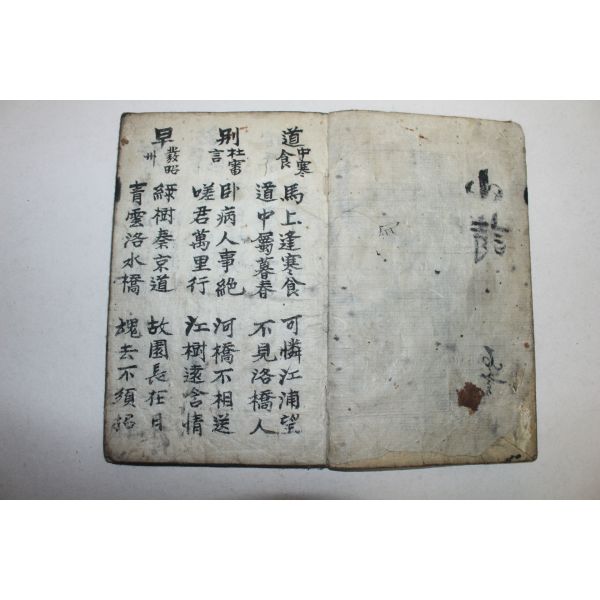 道中寒食
馬上逢寒食 可憐江浦望
道中屬暮春 不見洛橋人
別杜審言
臥病人事絶 河橋不相送
嗟君萬里行 江樹遠含情
早發昭州
綠樹秦京道 故園長在目
青雲洛水橋 魂去不須招